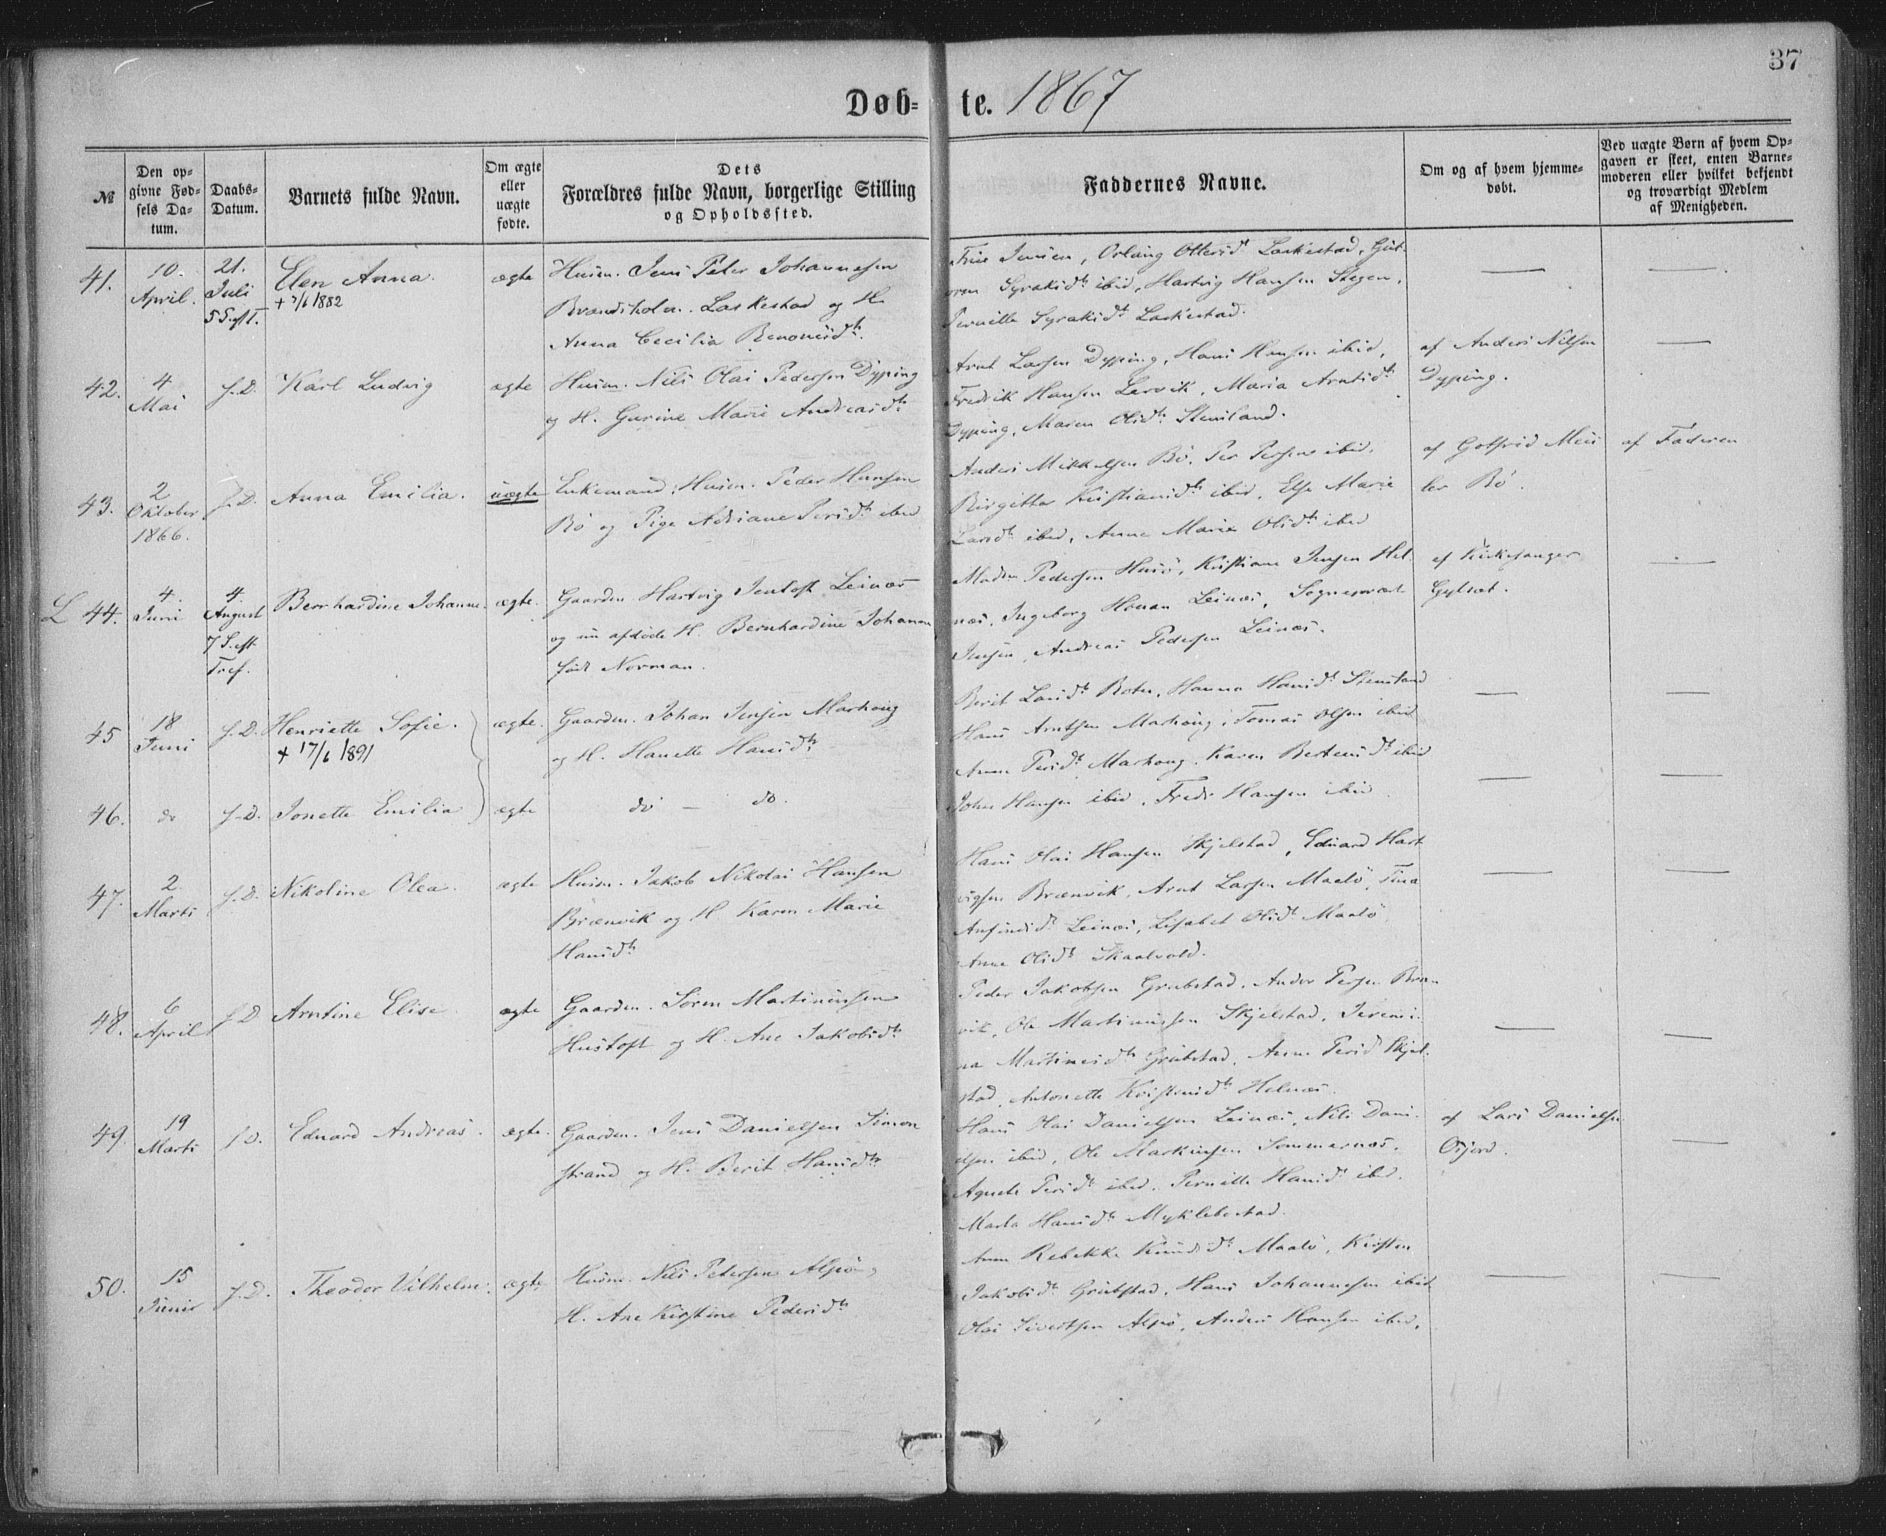 37
Døb-te. 1867
№
Den op-
givne Fød-
sels Da-
tum.
Daabs-
Datum.
Barnets fulde Navn.
Om ægte
eller
uægte
fødte.
Dets
Forældres fulde Navn, borgerlige Stilling
og Opholdssted.
Faddernes Navne.
Om og af hvem hjemme-
døbt.
Ved uægte Børn af hvem Op-
gaven er skeet, enten Barne-
moderen eller hvilket bekjendt
og troværdigt Medlem
af Menigheden.
41.
10.
April.
21.
Juli
5 S. eft T.
Elen Anna.
+ 7/6 1882
ægte
Husm. Jens Peter Johannesen
Brændsholm. Laskestad og H.
Anna Cecilia Benonisdt.
Jensen, Laskestad,
ibid, Hartvig Hansen Stegen,
Pernille Syraksdt Laskestad.
42.
4
Mai
f. D.
Karl Ludvig
ægte
Husm. Nils Olai Pedersen Dyping
og H. Gurine Marie Andreasdt.
Arnt Larsen Dyping, Hans Hansen ibid,
Fredrik Hansen Lervik, Maria Arntsdt
Dyping, Maren Olsdt Stensland.
af Anders Nilsen
Dyping.
43.
2
Oktober
1866.
f. D.
Anna Emilia.
uægte
Enkemand, Husm. Peder Hansen
Bø og Pige Adriane Persdt ibid
Anders Mikkelsen Bø, Per Persen ibid,
Birgitta Kristiansdt ibid, Else Marie
Larsdt ibid, Anne Marie Olsdt ibid
af Gotfrid Meis
ler Bø.
af Faderen
L 44.
4.
Juni
4.
August
7 S. eft
Tref.
Bernhardine Johanne.
ægte.
Gaardm. Hartvig Jentoft Leinæs
og nu afdøde H. Bernhardine Johanna
født Norman.
Pedersen Husø, Kristiane Jensen Hel
næs, Ingeborg Leinæs,
Jensen, Andreas Pedersen Leinæs.
af Kirkesanger
Gylset.
45
18
Juni
f. D.
Henriette Sofie.
+ 17/6 1891
ægte.
Gaardm. Johan Jensen Marhaug
og H. Hanette Hansdt
Berit Larsdt Boten, Hanna Hansdt Stensland
Hans Arntsen Marhaug, Tomas Olsen ibid
Anne Persdt Marhaug, Karen ibid
46.
do
f. D.
Jonette Emilia
ægte
do — do.
John Hansen ibid, Fredr Hansen ibid.
47.
2.
Marts
f. D.
Nikoline Olea.
ægte
Husm. Jakob Nikolai Hansen
Brænvik og H. Karen Marie
Hansdt
Hans Olai Hansen Skjelstad, Eduard Hart
vigsen Brænvik, Arnt Larsen Maalø,
Leinæs, Lisabet Olsdt Maalø,
Anne Olsdt Skaalvold.
48.
6
April
f. D
Arntine Elise
ægte
Gaardm. Søren Martinussen
Hustoft og H. Ane Jakobsdt
Peder Jakobsen Grubstad, Ander Persen Bræn
vik, Ole Martinussen Skjelstad,
na Martinesdt Grubstad, Anne Persdt Skjel
stad, Antonette Kristensdt Helnæs.
49.
19
Marts
f. D.
Eduard Andreas.
ægte.
Gaardm. Jens Danielsen Simon
strand og H. Berit Hansdt
Hans Olai Danielsen Leinæs, Nils Dani
elsen ibid, Ole Markusen Sommernæs,
Agnete Persdt ibid, Pernille Hansdt ibid.
Marta Hansdt Myklebostad.
af Lars Danielsen
50.
15
Juni
f. D.
Theodor Vilhelm.
ægte
Husm. Nils Petersen Alpøy
H. Ane Kirstine Pedersdt
Ann Rebekke Knudsdt Maalø, Kirsten
Jakobsdt Grubstad, Hans Johannesen ibid
Olai Sivertsen Alpø, Anders Hansen ibid.